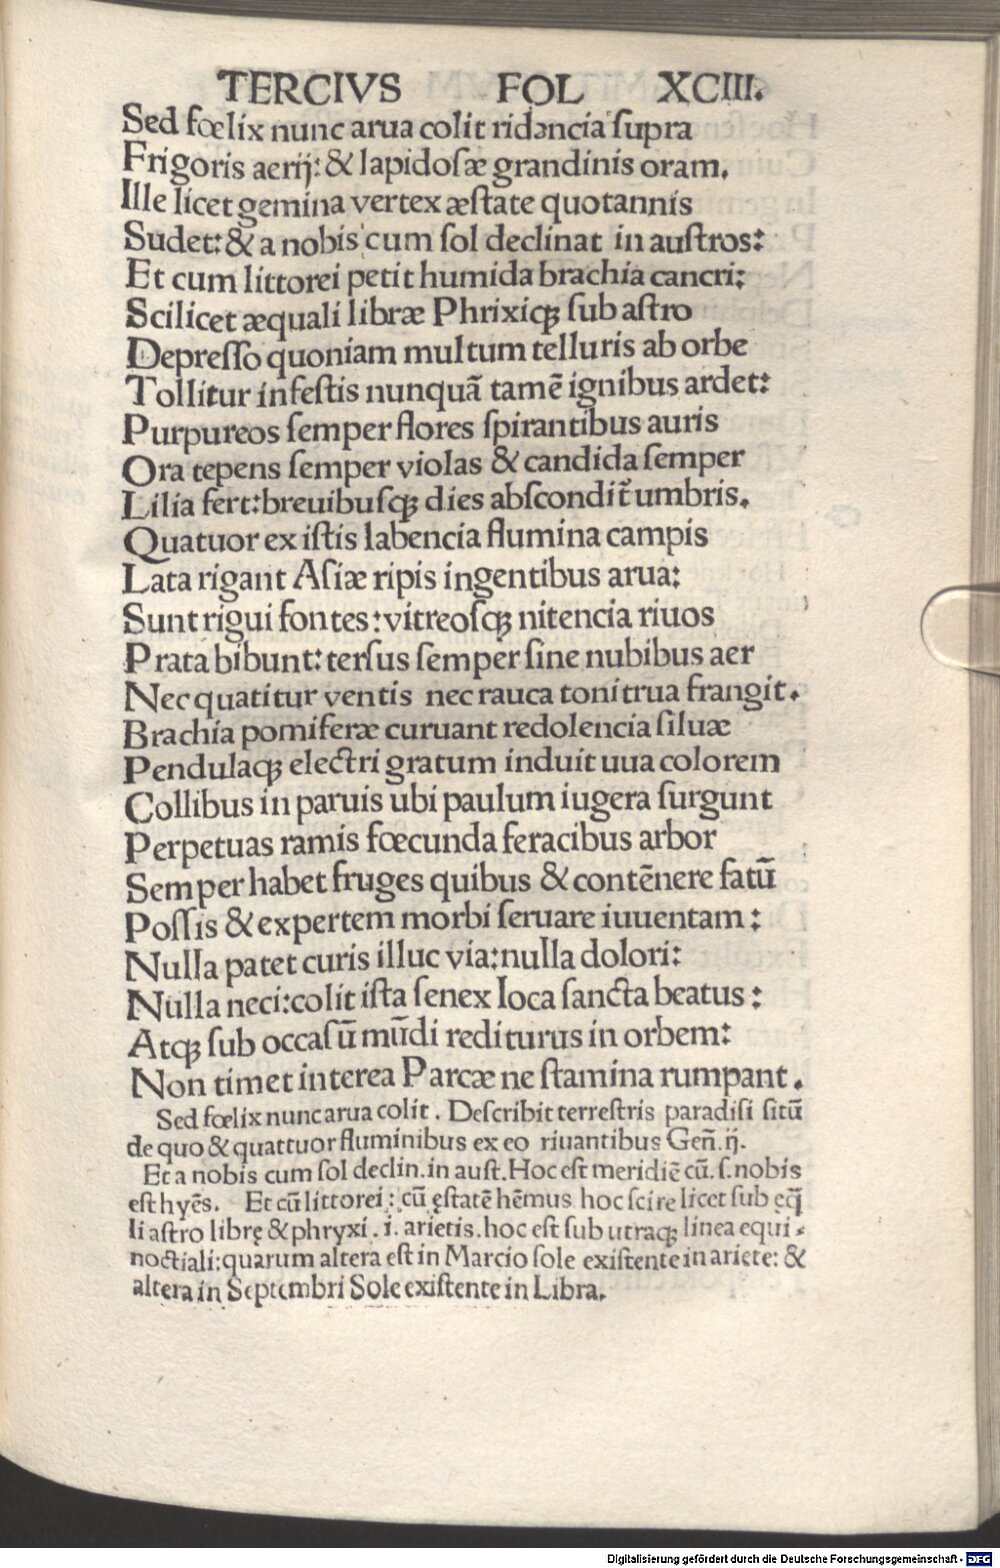 TERCIVS FOL XCIII.
Sed fœlix nunc arua colit ridencia ſupra
Frigoris aerij: & lapidoſæ grandinis oram.
Ille licet gemina vertex æſtate quotannis
Sudet: & a nobis cum ſol declinat in auſtros:
Et cum littorei petit humida brachia cancri:
Scilicet æquali libræ Phrixiqꝫ ſub aſtro
Depreſſo quoniam multum telluris ab orbe
Tollitur infeſtis nunquã tamẽ ignibus ardet:
Purpureos ſemper flores ſpirantibus auris
Ora tepens ſemper violas & candida ſemper
Lilia fert: breuibuſqꝫ dies abſcondit᷑ umbris.
Quatuor ex iſtis labencia flumina campis
Lata rigant Aſiæ ripis ingentibus arua:
Sunt rigui fontes: vitreoſqꝫ nitencia riuos
Prata bibunt: terſus ſemper ſine nubibus aer
Nec quatitur ventis nec rauca tonitrua frangit.
Brachia pomiferæ curuant redolencia ſiluæ
Pendulaqꝫ electri gratum induit uua colorem
Collibus in paruis ubi paulum iugera ſurgunt
Perpetuas ramis fœcunda feracibus arbor
Semper habet fruges quibus & contẽnere fatũ
Poſſis & expertem morbi ſeruare iuuentam:
Nulla patet curis illuc via: nulla dolori:
Nulla neci: colit iſta ſenex loca ſancta beatus:
Atqꝫ ſub occaſũ mũdi rediturus in orbem:
Non timet interea Parcæ ne ſtamina rumpant.
Sed fœlix nunc arua colit. Deſcribit terreſtris paradiſi ſitũ
de quo & quattuor fluminibus ex eo riuantibus Geñ. ij.
Et a nobis cum ſol declin. in auſt. Hoc eſt meridiẽ cũ. ſ. nobis
eſt hyẽs. Et cũ littorei: cũ ęſtatẽ hẽmus hoc ſcire licet ſub ęq̃
li aſtro librę & phryxi. i. arietis. hoc eſt ſub utraqꝫ linea equi-
noctiali: quarum altera eſt in Marcio ſole exiſtente in ariete: &
altera in Septembri Sole exiſtente in Libra.
Digitalisierung gefördert durch die Deutsche Forschungsgemeinschaft - DFG